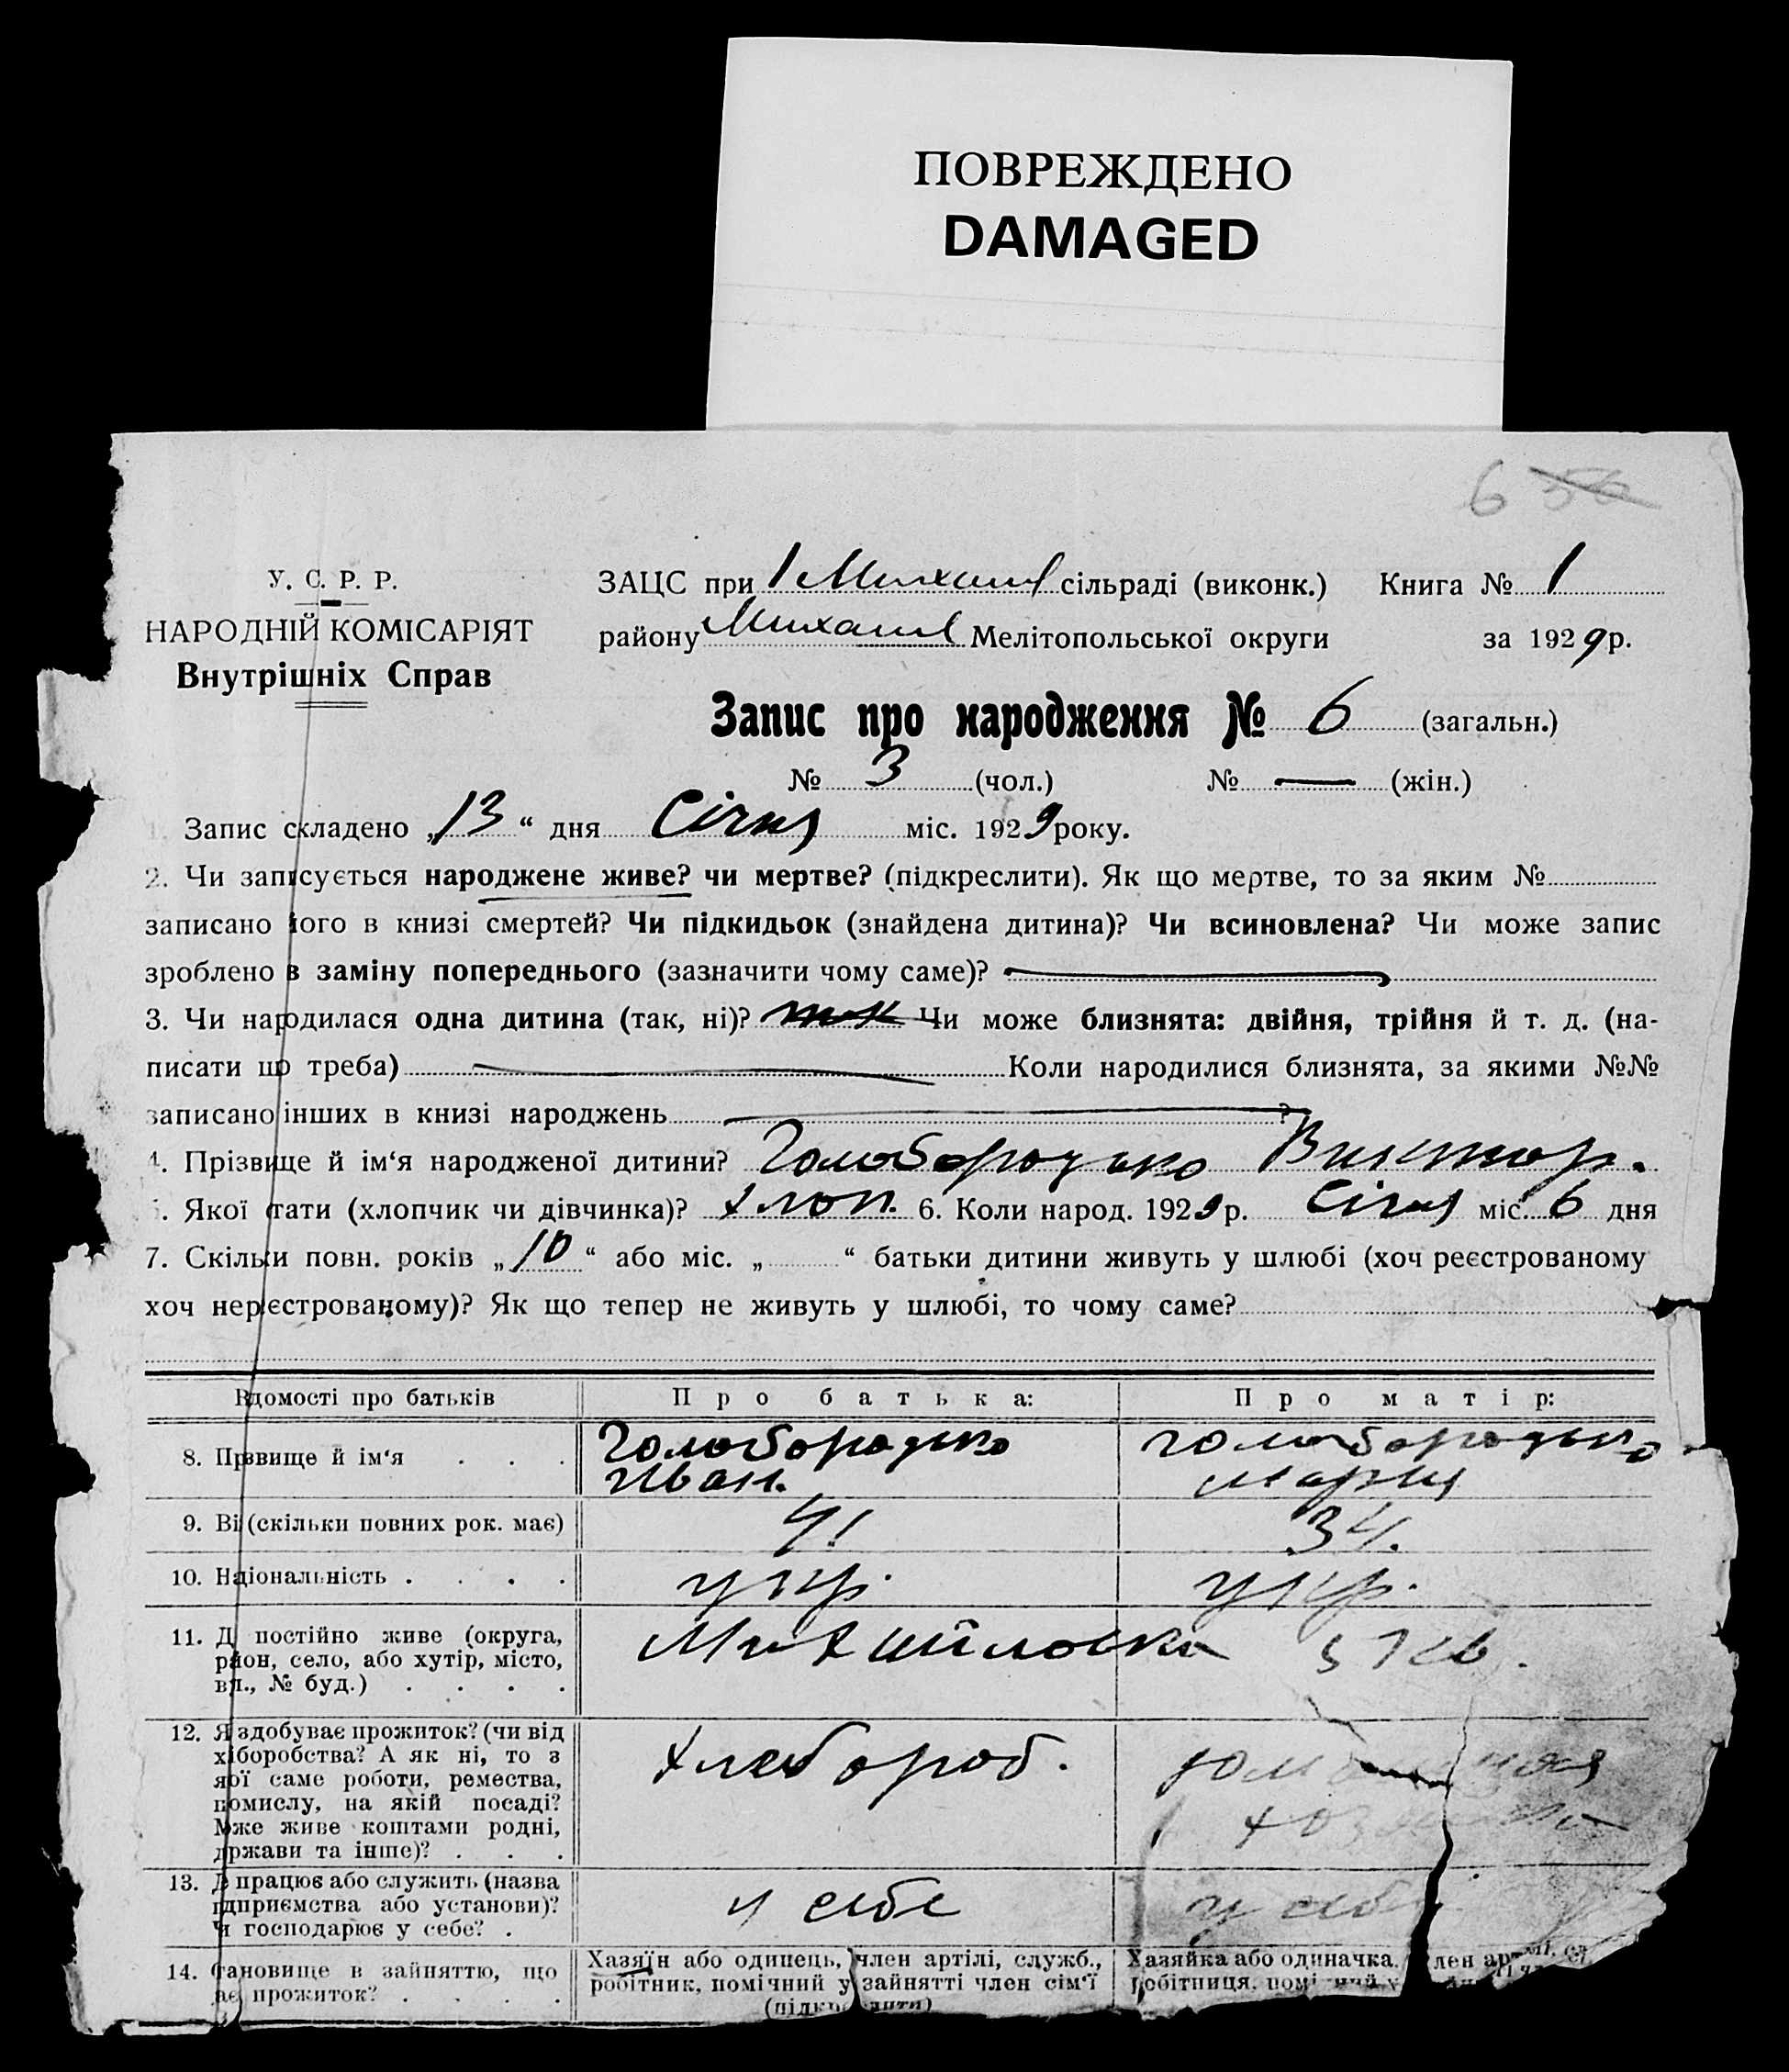 ПОВРЕЖДЕНО
DAMAGED
6 56
У. С. Р. Р.
НАРОДНІЙ КОМІСАРІЯТ
Внутрішніх Справ
ЗАЦС при 1 Михайлів сільраді (виконк.) Книга № 1
району Михайлів Мелітопольської округи за 1929 р.
Запис про народження № 6 (загальн.)
№ 3 (чол.) № — (жін.)
1. Запис складено „13“ дня Січня міс. 1929 року.
2. Чи записується народжене живе? чи мертве? (підкреслити). Як що мертве, то за яким №
записано його в книзі смертей? Чи підкидьок (знайдена дитина)? Чи всиновлена? Чи може запис
зроблено в заміну попереднього (зазначити чому саме)? —
3. Чи народилася одна дитина (так, ні)? так Чи може близнята: двійня, трійня й т. д. (на-
писати що треба) — Коли народилися близнята, за якими №№
записано інших в книзі народжень — ?
4. Прізвище й ім‘я народженої дитини? Голобородько Виктор.
5. Якої стати (хлопчик чи дівчинка)? хлоп. 6. Коли народ. 1929 р. Січня міс. 6 дня
7. Скільки повн. років „10“ або міс. „ “ батьки дитини живуть у шлюбі (хоч реєстрованому
хоч нереєстрованому)? Як що тепер не живуть у шлюбі, то чому саме?
Відомості про батьків Про батька: Про матір:
8. Прізвище й ім‘я . . . Голобородько Иван. Голобородько Мария
9. Вік (скільки повних рок. має) 41 34.
10. Національність . . . . укр. укр.
11. Де постійно живе (округа,
район, село, або хутір, місто,
вул., № буд.) . . . . Михайловка
12. Як здобуває прожиток? (чи від
хліборобства? А як ні, то з
якої саме роботи, ремества,
промислу, на якій посаді?
Може живе коштами родні,
держави та інше)? . . . хлебороб.
13. Де працює або служить (назва
підприємства або установи)?
Чи господарює у себе? . у себе у себе
14. Становище в зайняттю, що
дає прожиток? . . . .
Хазяїн або одинець, член артілі, служб.,
робітник, помічний у зайнятті член сім‘ї
(підкреслити)
Хазяйка або одиначка, член артілі, сл
робітниця, помічний у